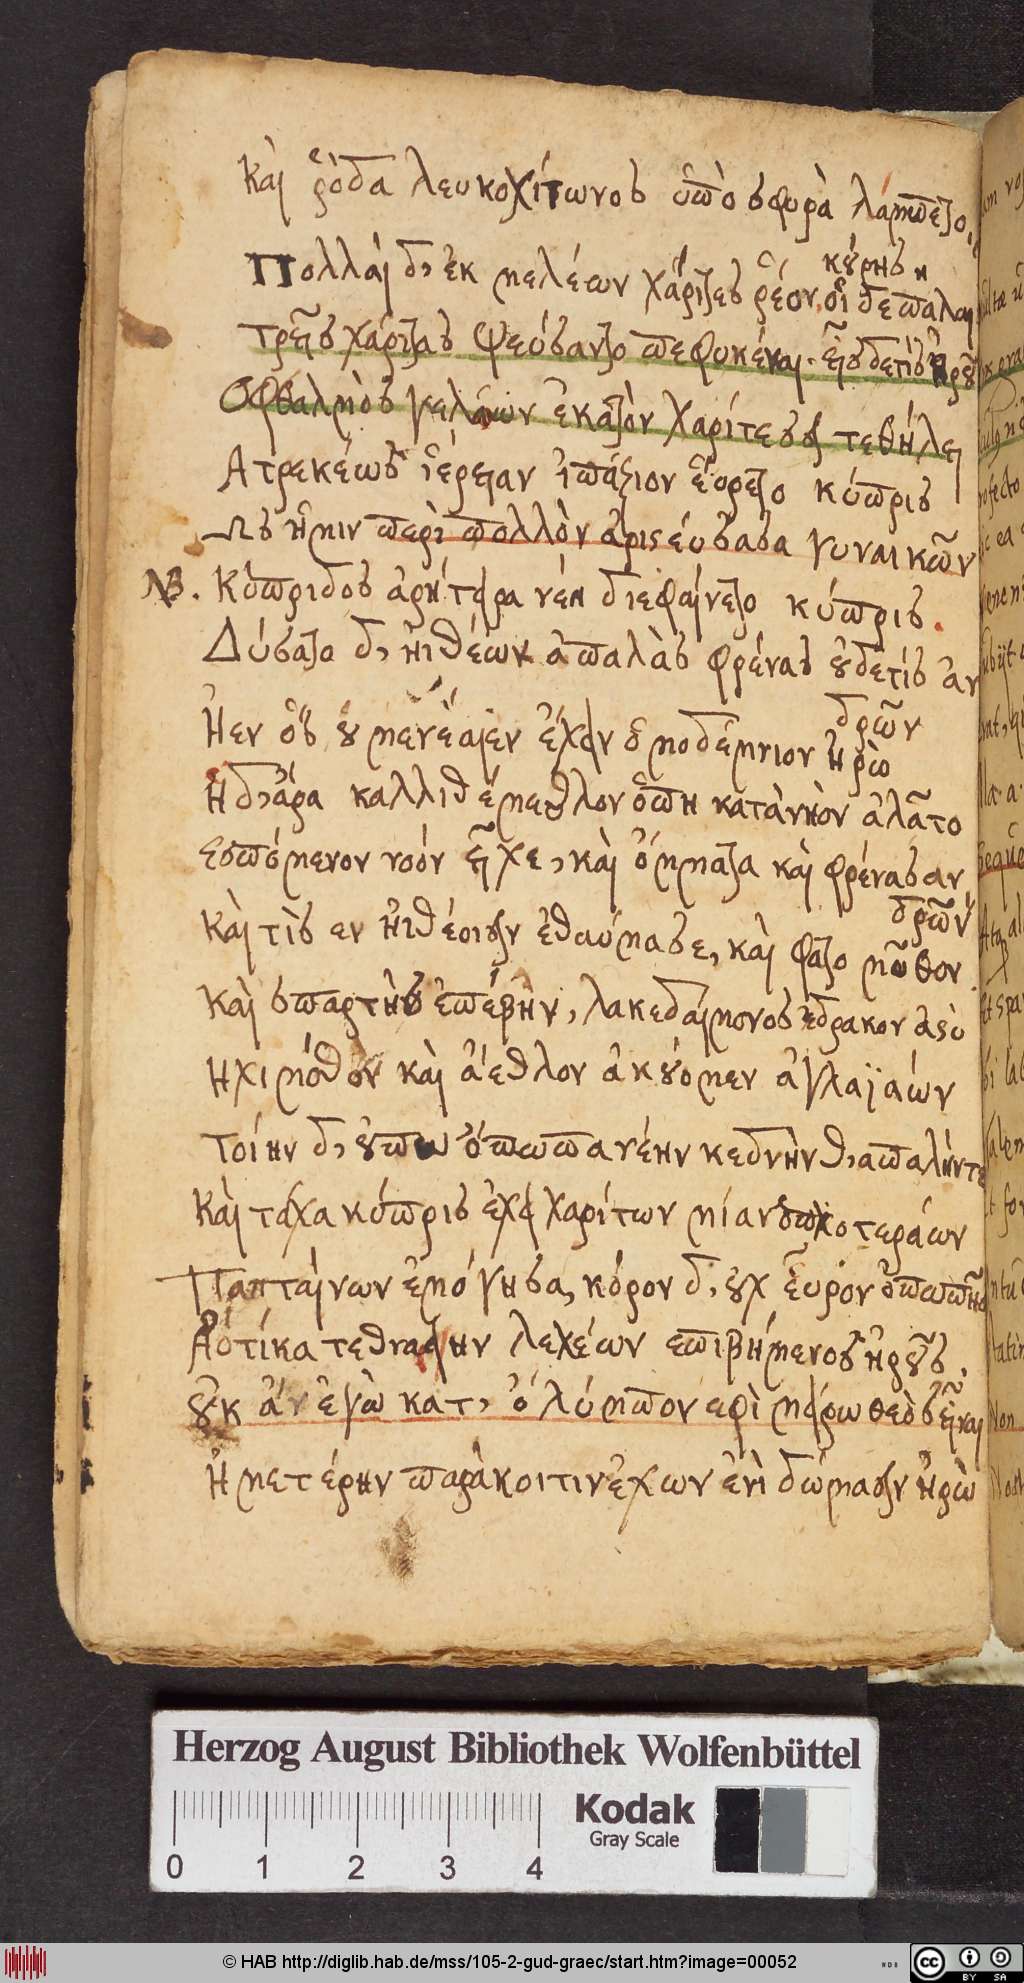 Καὶ ῥόδα λευκοχίτωνος ὑπὸ σφυρὰ λάμπετο
κούρης
Πολλαὶ δ' ἐκ μελέων χάριτες ῥέον. οἱ δὲ παλαιοὶ
τρεῖς χάριτας ψεύσαντο πεφυκέναι. εἷς δέ τις Ἡροῦς
Ὀφθαλμὸς γελόων ἑκατὸν χαρίτεσσι τεθήλει
Ἀτρεκέως ἱέρειαν ἐπάξιον εὕρετο κύπρις
Ὣς ἡ μὲν περὶ πολλὸν ἀριστεύσασα γυναικῶν
NB. Κύπριδος ἀρήτειρα νέη διεφαίνετο κύπρις.
Δύσατο δ' ἠιθέων ἁπαλὰς φρένας οὐδέ τις ἀν
δρῶν
Ἦεν ὃς οὐ μενέαινεν ἔχειν ὁμοδέμνιον Ἡρὼ
Ἡ δ' ἄρα καλλιθέμεθλον ὅπη κατὰ νηὸν ἀλᾶτο
Ἑσπόμενον νόον εἶχε, καὶ ὄμματα καὶ φρένας ἀν
δρῶν
Καί τις ἐν ἠιθέοισιν ἐθαύμασε, καὶ φάτο μῦθον.
Καὶ σπάρτης ἐπέβην, λακεδαίμονος ἔδρακον ἄστυ
Ἧχι μόθον καὶ ἄεθλον ἀκούομεν ἀγλαϊάων
Τοίην δ' οὔπω ὄπωπα νέην κεδνήν θ' ἁπαλήν τε
Καὶ τάχα κύπρις ἔχει χαρίτων μίαν ὁπλοτεράων
Παπταίνων ἐμόγησα, κόρον δ' οὐχ εὗρον ὀπωπῆς
Αὐτίκα τεθναίην λεχέων ἐπιβήμενος Ἡροῦς.
οὐκ ἂν ἐγὼ κατ' ὄλυμπον ἐφιμείρω θεὸς εἶναι
Ἡμετέρην παράκοιτιν ἔχων ἐνὶ δώμασιν Ἡρὼ
Herzog August Bibliothek Wolfenbüttel
Kodak
Gray Scale
0 1 2 3 4
© HAB http://diglib.hab.de/mss/105-2-gud-graec/start.htm?image=00052
cc BY SA